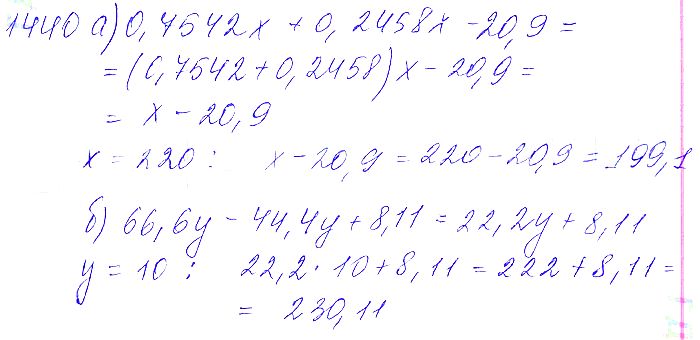 1440 а) 0,7542x + 0,2458x - 20,9 =
= (0,7542 + 0,2458)x - 20,9 =
= x - 20,9
x = 220 : x - 20,9 = 220 - 20,9 = 199,1
б) 66,6y - 44,4y + 8,11 = 22,2y + 8,11
y = 10 : 22,2 · 10 + 8,11 = 222 + 8,11 =
= 230,11